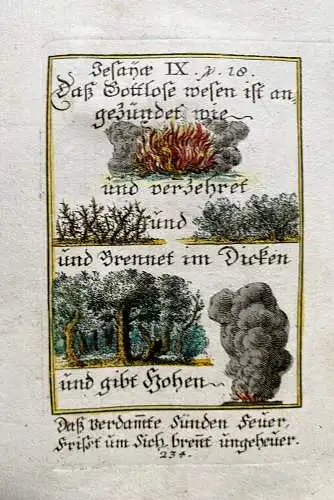 Jesayæ IX. v. 18.
Daß Gottlose wesen ist an-
gezündet wie
und verzehret
und
und Brennet im Dicken
und gibt Hohen
Daß verdam̄te Sünden Feuer,
Frißt um Sich, breñt ungeheuer.
234.